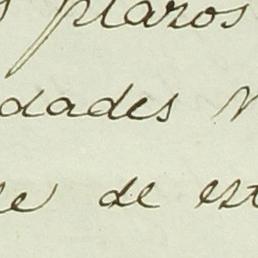 s plazos
dades
de est